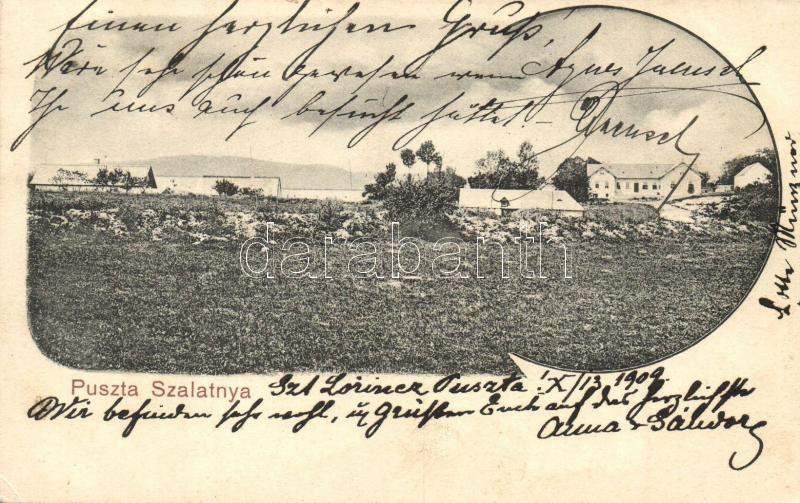 Einen herzlichen Gruß,
Wäre sehr schön gewesen wenn
Ihr uns auch besucht hättet. –
Agnes Jaensch
Jaensch
Lotte
darabanth
Puszta Szalatnya
Szt Lörincz Puszta X/13 1909.
Wir befinden sehr wohl, u. grüßen Euch auf das herzlichste
Anna + Sándor